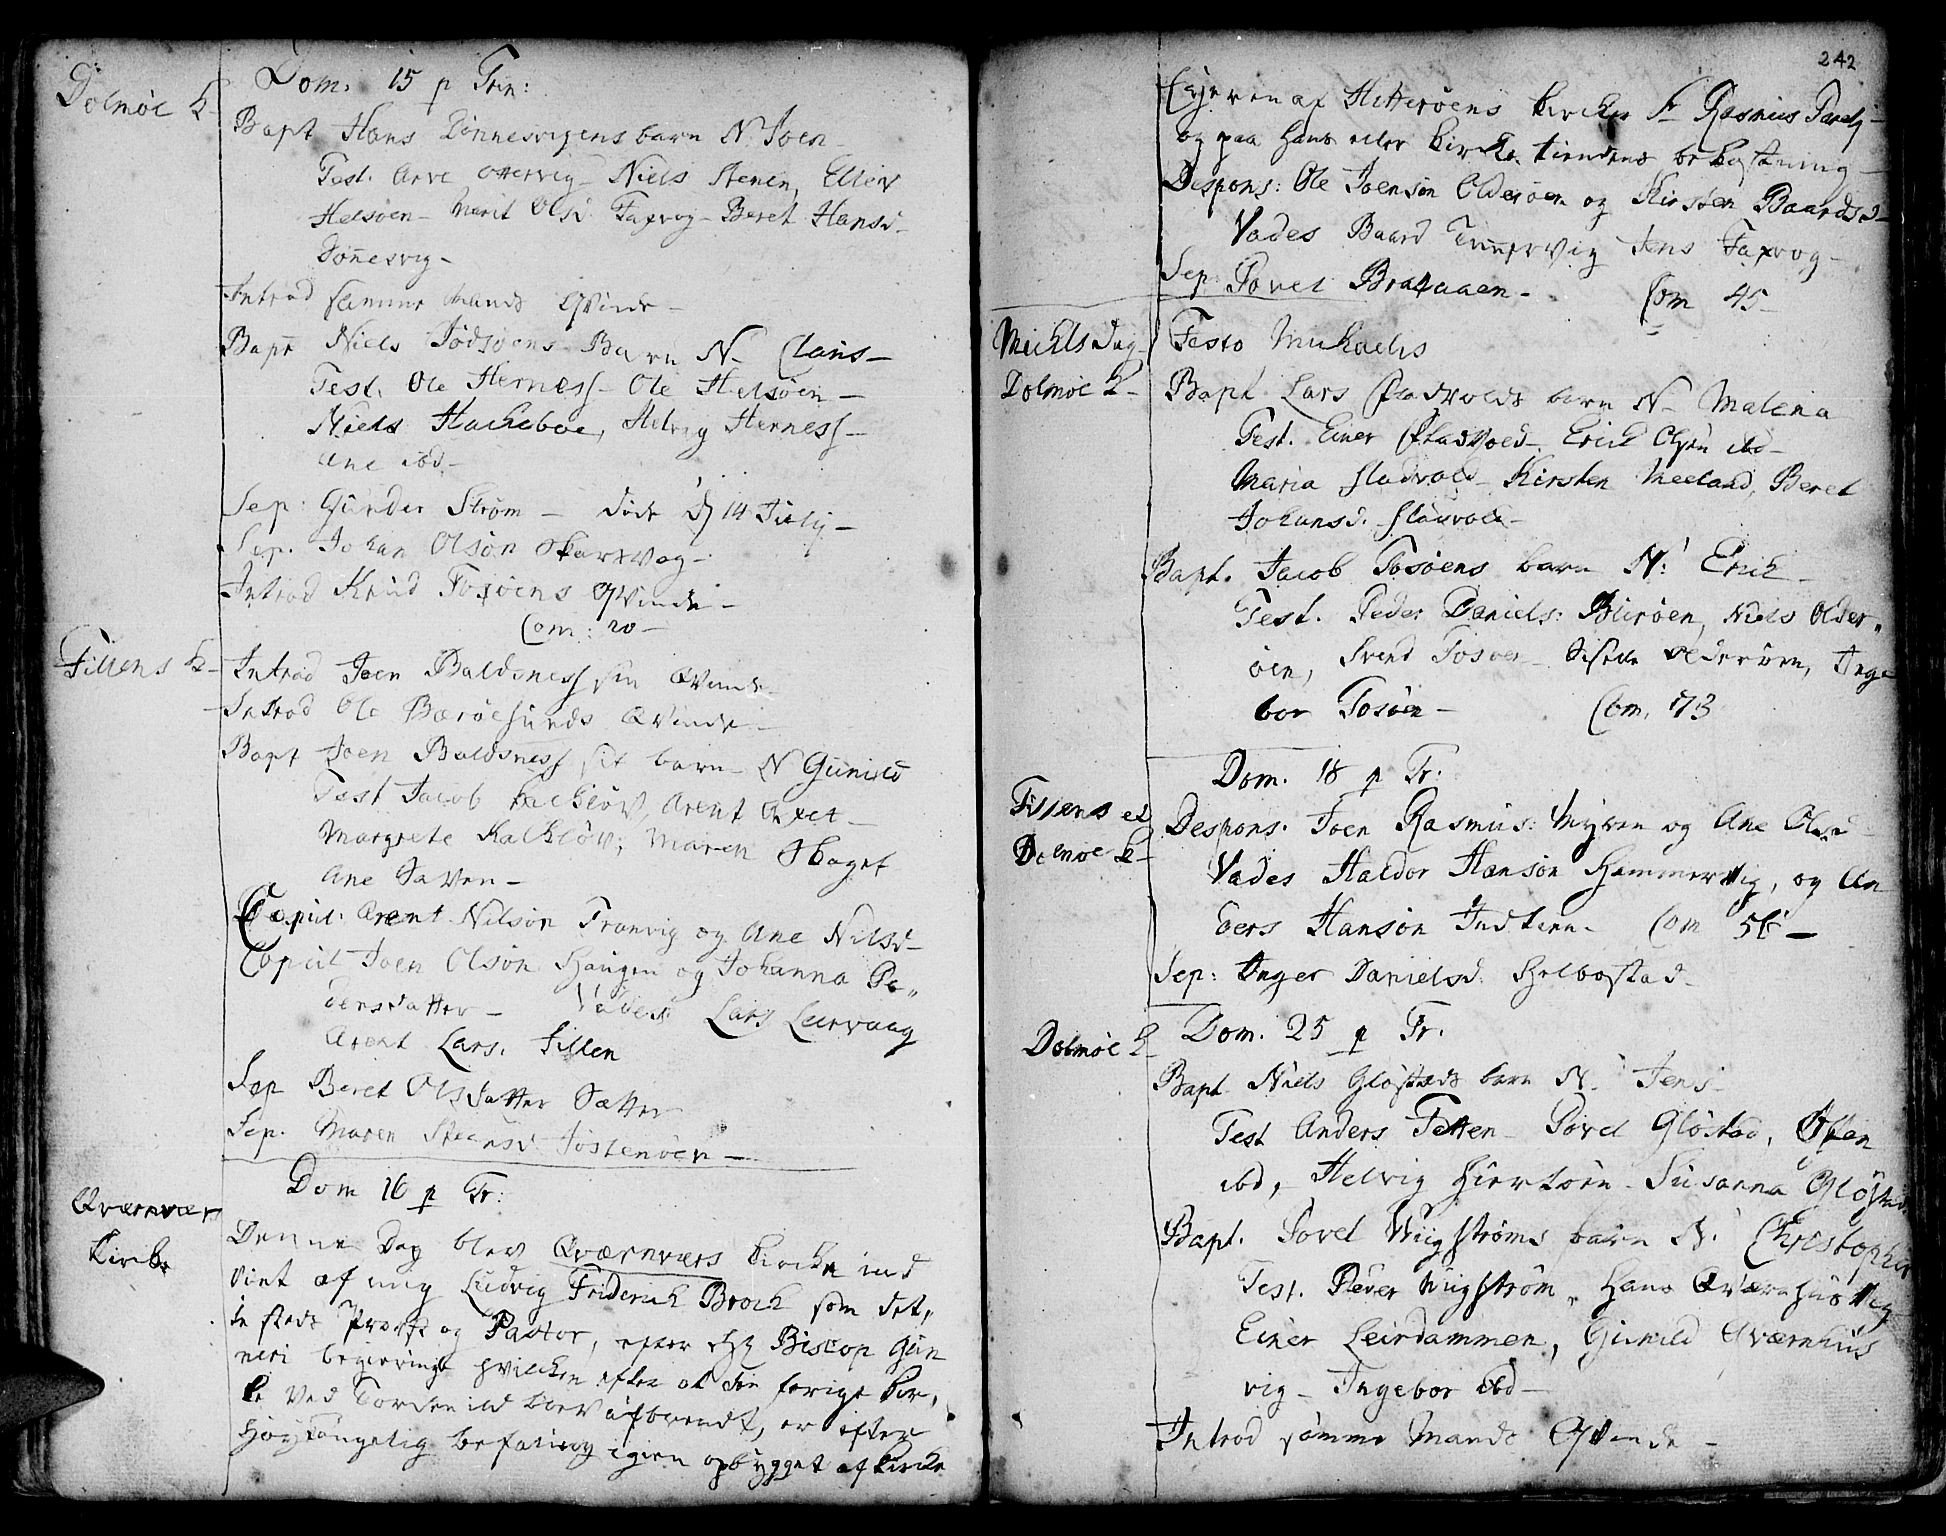 Dom. 15 p Trin:
Dolmøe K
Bapt Hans Dönnesvigens barn N. Joen
Test. Arve Ottervig Niels Stenen, Ellev
Helsöen- Marit Olsd Faxvog- Beret Hansd-
Dönnesvig-
Introd samme Mands Qvinde-
Bapt Niels Jödsöens Barn N- Claus-
Test. Ole Herness- Ole Helsöen-
Niels Hackeboe, Helvig Herness-
Ane ibd-
Sep: Gunder Strøm- döde d 14 July-
Sep. Johan Olsön Skarsvog-
Introd Knud Foxöens Qvinde-
Com: 20-
Fillens K-
Introd Joen Baldsness sin Qvinde
Introd Ole Baröesunds Qvinde-
Bapt Joen Baldsness sit barn- N Gunild
Test Jacob Kalkløv, Arent
Margrete Kalkløv, Maren Skaget
Ane Saven-
Copul: Arent Nilsön Tranvig og Ane Nilsd-
Copul Joen Olsön Haugen og Johanna Pe„
dersdatter- Vades Lars Leervaag
Arent Lars. Fillen
Sep Beret Olsdatter Sætter
Sep. Maren Steensd Jöstenöen-
Dom 16 p Tr:
Qværnvær
Kirke
Denne Dag blev Qværnværs Kircke ind
viet af mig Ludvig Friderich Broch som det,
te steds Provst og Pastor, efter Hr Biscop Gun
neri begiering hvilcken efter at den forige Kir,
ke ved Tordenild blev afbrendt, er efter
Høykongelig befaling igien opbygget af Kirke
242
Eyeren af Hitterøens Kircker Sr Rasmus Parelj-
og paa hans eller Kircke tiendens bekostning-
Despons: Ole Joensön Olderöen og Kirsten Baardsd-
Vades Baard Tunervig Jens Faxvog-
Sep Povel Brataaen- Com 45-
Michls Dag
Dolmøe K-
Festo Michaelis
Bapt Lars Sladvolds barn N- Malena
Test. Einer Sladvold- Erich Olsön ibd-
Maria Sladvold- Kirsten Meeland, Beret
Johansd. Sladvold-
Bapt. Jacob Fosöens barn N: Erich-
Test. Peder Daniels: Burøen, Niels Older„
öen, Svend Fosøen- Sisella Olderöen, Inge
bor Fosöen- Com. 73
Dom. 18 p Tr:
Fillens et
Dolmøe K-
Despons. Joen Rasmus: Myren og Ane Olsd-
Vades Haldor Hansön Hammervig, og An
ders Hansön Indtian- Com 56-
Sep: Inger Danielsd. Helbostad-
Dolmøe K
Dom. 25 p Tr.
Bapt Niels Gløstads barn N. Jens-
Test Anders Fetten- Povel Gløstad, Sten
ibd, Helvig Hiertöen- Susanna Gløstad
Bapt. Povel Wiigstrøms barn N. Christopher
Test. Peder Wiigstrøm, Hans Qværnhusvig
Einer Leirdammen, Gunild Qværnhus
vig- Ingebor ibd-
Introd samme Mands Qvinde-